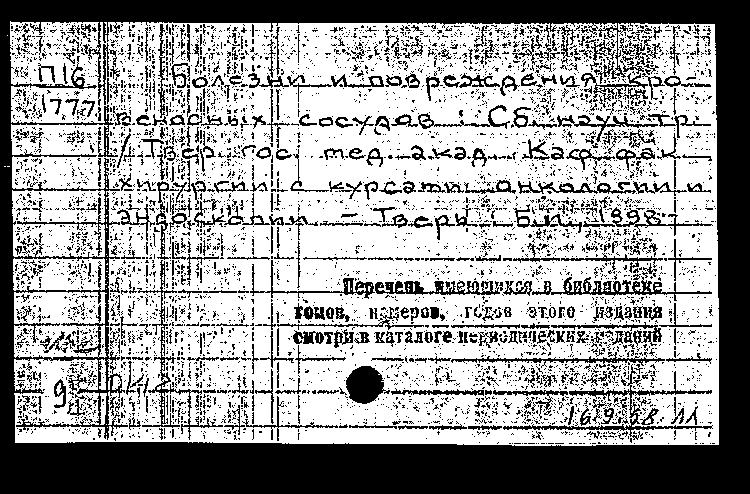 П16 Болезни и повреждения кро-
1777 веносных сосудов : Сб. науч. тр.
/ Твер. гос. мед. акад. Каф. фак.
хирургии с курсами онкологии и
эндоскопии. - Тверь : Б.и., 1998-
Перечень имеющихся в библиотеке
томов, номеров, годов этого издания
смотри в каталоге периодических изданий
16.9.98